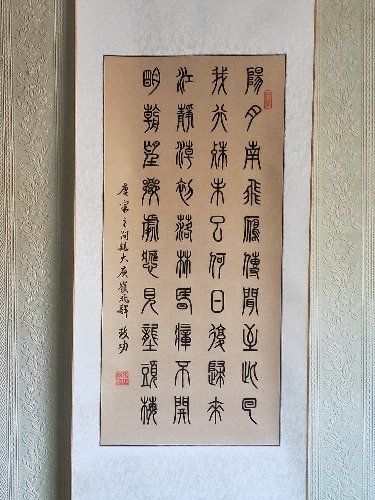 陽月南飛鴈傳聞至此回
我行殊未已何日復歸來
江靜潮初落林昏瘴不開
明朝望鄉處應見隴頭梅
唐宋之问題大庾嶺北驛 政功